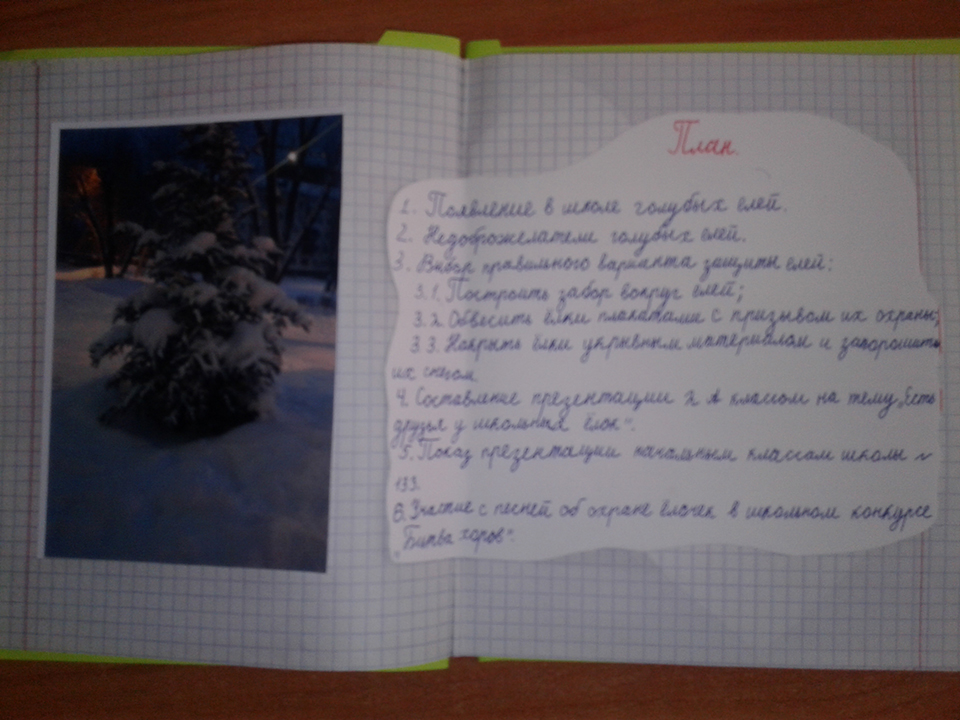 План.
1. Появление в школе голубых елей.
2. Недоброжелатели голубых елей.
3. Выбор правильного варианта защиты елей:
3.1. Построить забор вокруг елей;
3.2. Обвесить ёлки плакатами с призывом их охраны;
3.3. Накрыть ёлки укрывным материалом и заворошить
их снегом.
4. Составление презентации 2 А классом на тему „Есть
друзья у школьных ёлок".
5. Показ презентации начальным классам школы №
133.
6. Участие с песней об охране ёлочек в школьном конкурсе
„Битва хоров".